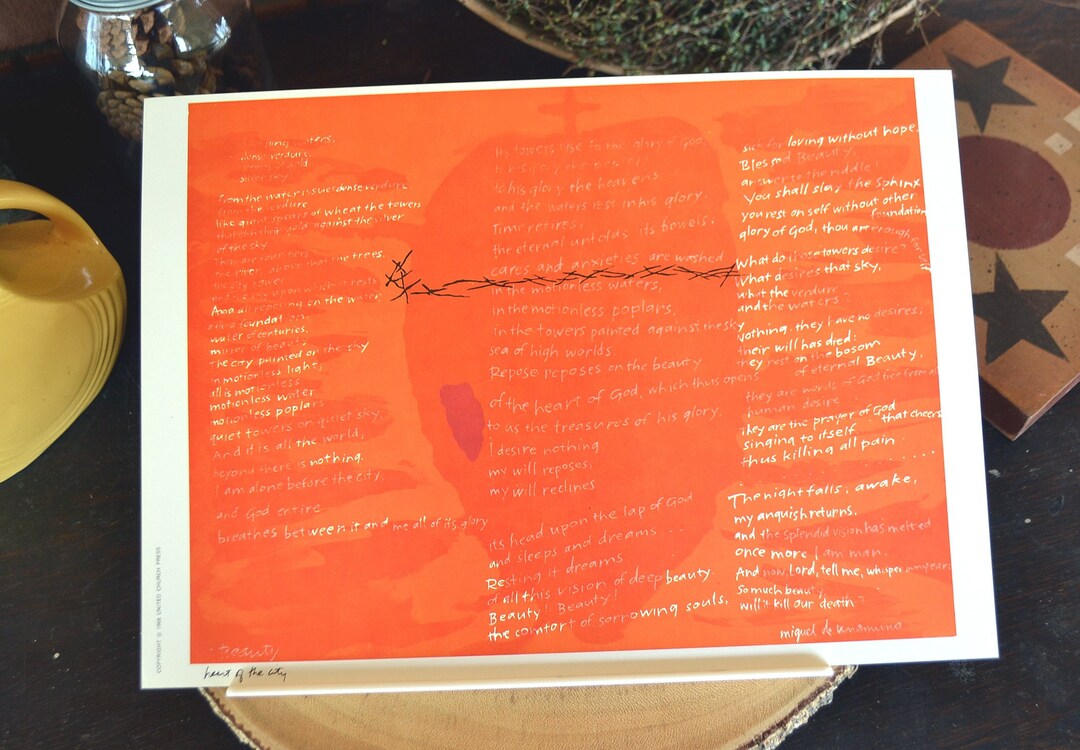 dense verdure
silver sky
From the water issues dense verdure
from the verdure
like great spears of wheat the towers
that stain gold against the silver
of the sky
the river, above that the trees,
the city tower,
And all reposing on the water
water of centuries,
mirror of beauty
the city painted on the sky
in motionless light,
all is motionless
motionless water
motionless poplars
quiet towers on quiet sky.
And it is all the world;
beyond there is nothing.
I am alone before the city,
and God entire
breathes between it and me all of its glory
beauty
Its towers rise to the glory of God
to his glory the heavens
and the waters rest in his glory.
Time retires;
the eternal unfolds its bowels;
cares and anxieties are washed
in the motionless waters,
in the motionless poplars,
in the towers painted against the sky
sea of high worlds.
Repose reposes on the beauty
of the heart of God, which thus opens
to us the treasures of his glory.
I desire nothing
my will reposes,
my will reclines
its head upon the lap of God
and sleeps and dreams ...
Resting it dreams
of all this vision of deep beauty
Beauty! Beauty!
the comfort of sorrowing souls,
sick for loving without hope.
Blessed Beauty,
answer to the riddle!
You shall slay the sphinx
you rest on self without other
foundation
glory of God, thou are enough for us
What do those towers desire
what desires that sky,
what the verdure
and the waters?
Nothing. they have no desires;
their will has died;
they rest on the bosom
of eternal Beauty,
they are words of God
human desire
They are the prayer of God
that cheers
singing to itself
thus killing all pain ....
The night falls, awake,
my anguish returns.
and the splendid vision has melted
once more I am man.
And now, Lord, tell me, whisper in my ears
So much beauty
will it kill our death?
miguel de unamuno
COPYRIGHT © 1968 UNITED CHURCH PRESS
heart of the city